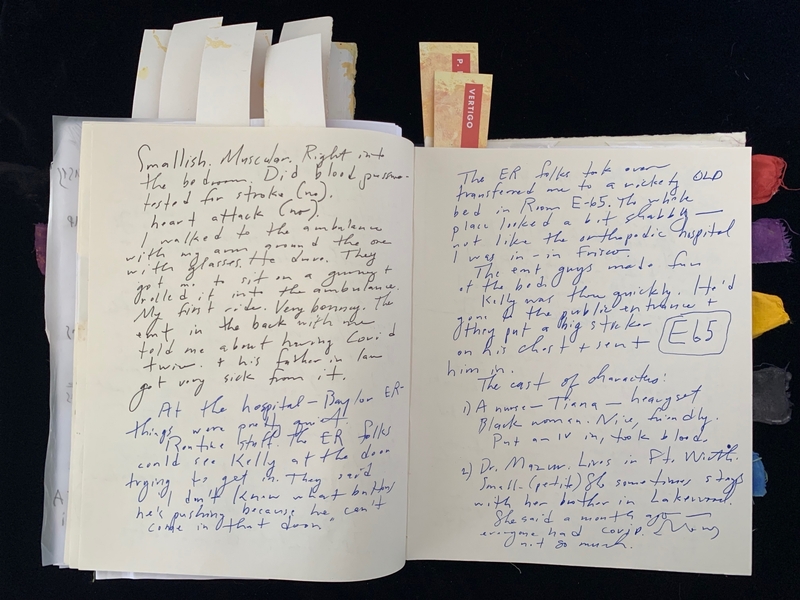 P.
VERTIGO
Smallish. Muscular. Right into
the bedroom. Did blood pressure -
tested for stroke (no).
heart attack (no).
I walked to the ambulance
with my arm around the one
with glasses. He drove. They
got me to sit on a gurney +
rolled it into the ambulance.
My first ride. Very bouncy. The
emt in the back with me
told me about having Covid
twice + his father in law
got very sick from it.
At the hospital - Baylor ER-
things were pretty quiet.
Routine stuff. The ER folks
could see Kelly at the door
trying to get in. They said
"I don't know what button
he's pushing because he can't
come in that door"
The ER folks took over
transferred me to a rickety OLD
bed in Room E-65. The whole
place looked a bit shabby -
not like the orthopedic hospital
I was in - in Frisco.
The emt guys made fun
of the bed.
Kelly was there quickly. He'd
gone to the public entrance +
they put a big sticker
on his chest + sent
E65
him in.
The cast of characters:
1) A nurse - Tiana - heavyset
Black woman. Nice, friendly.
Put an IV in, took blood.
2) Dr. Mazur. Lives in Ft. Worth.
Small - (petite) She sometimes stays
with her brother in Lakewood.
She said a month ago -
everyone had covid. Now
not so much.